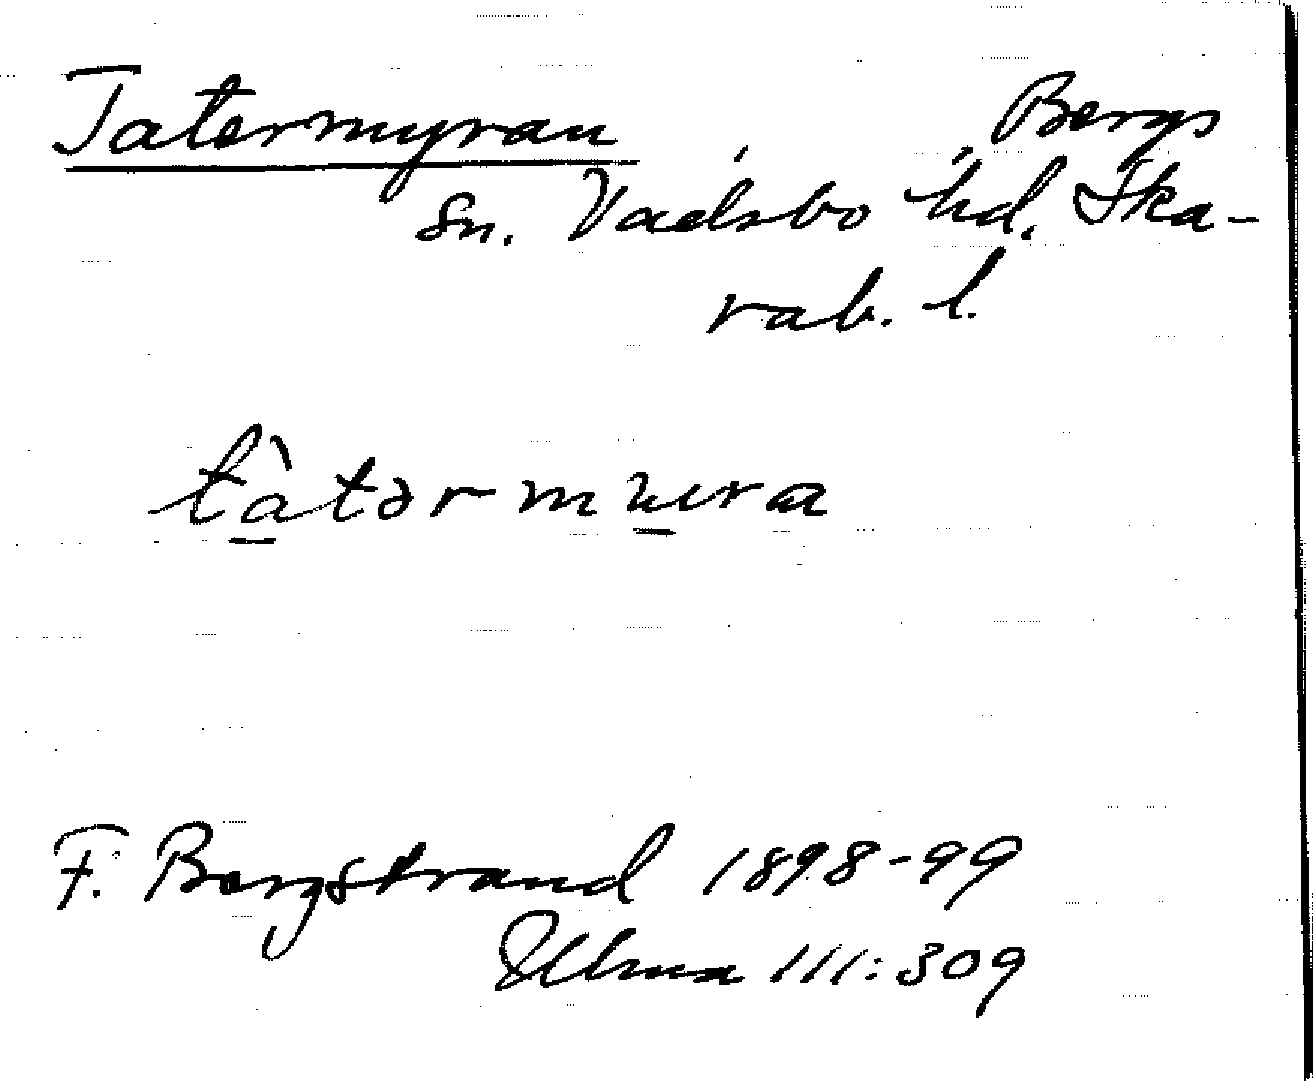 Tatermyran Bergs
Sn. Vadsbo hd. Ska-
rab. l.
tàtərmura
F. Bergstrand 1898-99
Ulma 111:309